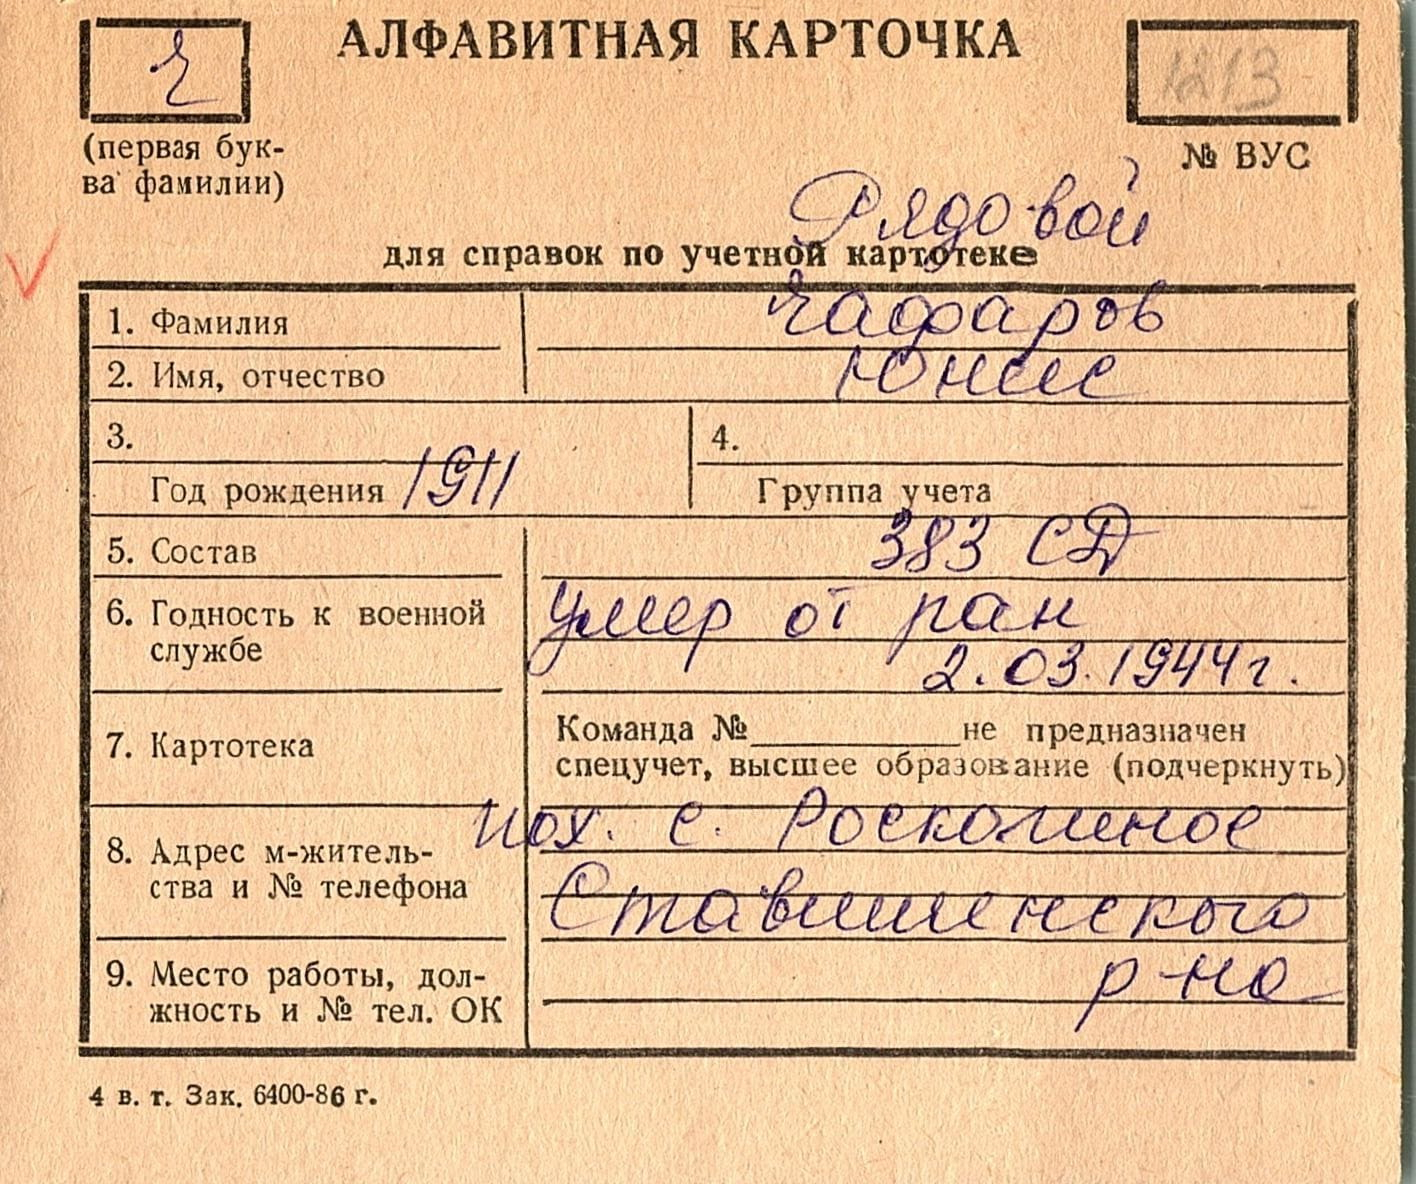 АЛФАВИТНАЯ КАРТОЧКА
1213
(первая бук-
ва фамилии)
№ ВУС
Рядовой
для справок по учетной картотеке
1. Фамилия
Гафаров
2. Имя, отчество
Юнис
3.
Год рождения 1911
4.
Группа учета
5. Состав
383 СД
6. Годность к военной
службе
умер от ран
2.03.1944г.
7. Картотека
Команда №__________не предназначен
спецучет, высшее образование (подчеркнуть)
8. Адрес м-житель-
ства и № телефона
пох. с.
р-на
9. Место работы, дол-
жность и № тел. ОК
4 в. т. Зак. 6400-86 г.